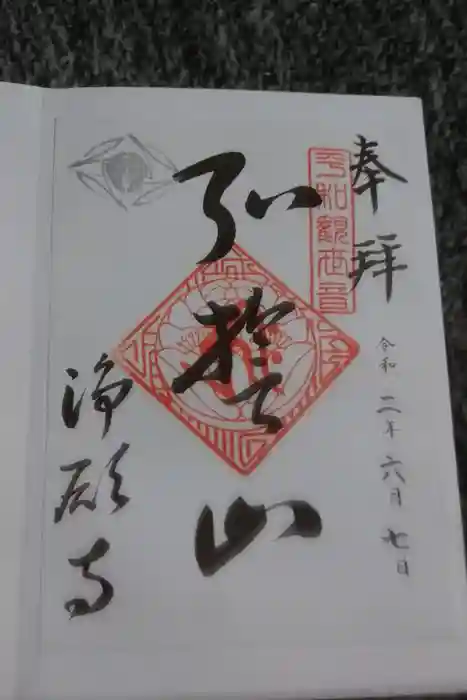 奉拝
平和観世音
令和二年六月七日
弘誓山
浄願寺